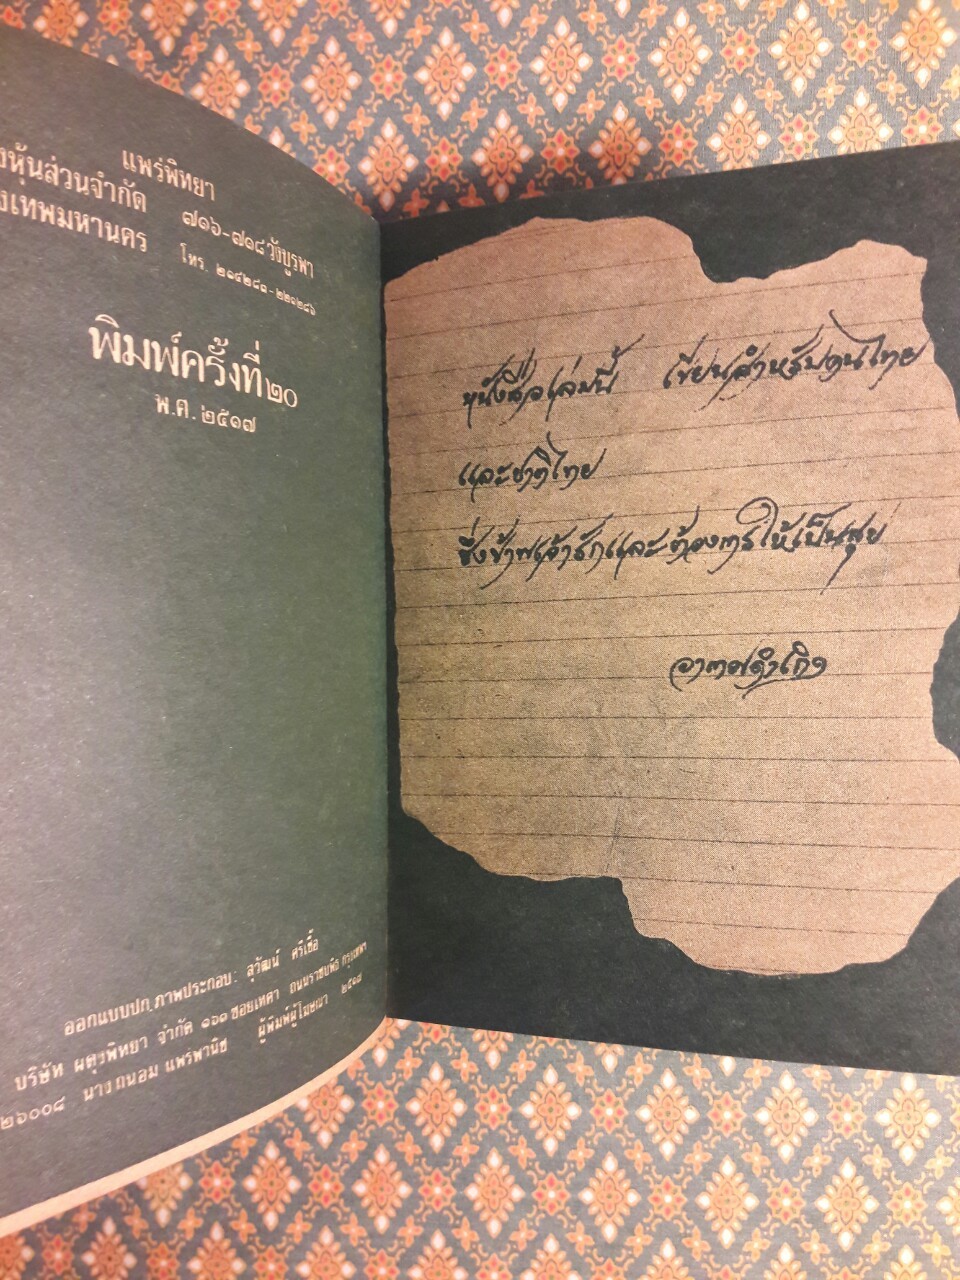 แพร่พิทยา
หุ้นส่วนจำกัด ๗๑๖-๗๑๘ วังบูรพา
เทพมหานคร โทร. ๒๑๔๒๘๓-๒๒๑๒๘๖
พิมพ์ครั้งที่ ๒๐
พ.ศ. ๒๕๑๗
ออกแบบปก, ภาพประกอบ: สุวัฒน์ ศรีเชื้อ
บริษัท ผดุงพิทยา จำกัด ๑๖๑ ซอยเทศา ถนนราชบพิธ กรุงเทพฯ
๒๖๐๐๘ นาง ถนอม แพร่พานิช ผู้พิมพ์ผู้โฆษณา ๒๕๑๗
หนังสือเล่มนี้ เขียนสำหรับคนไทย
และชาติไทย
ซึ่งข้าพเจ้ารักและต้องการให้เป็นสุข
อากาศดำเกิง